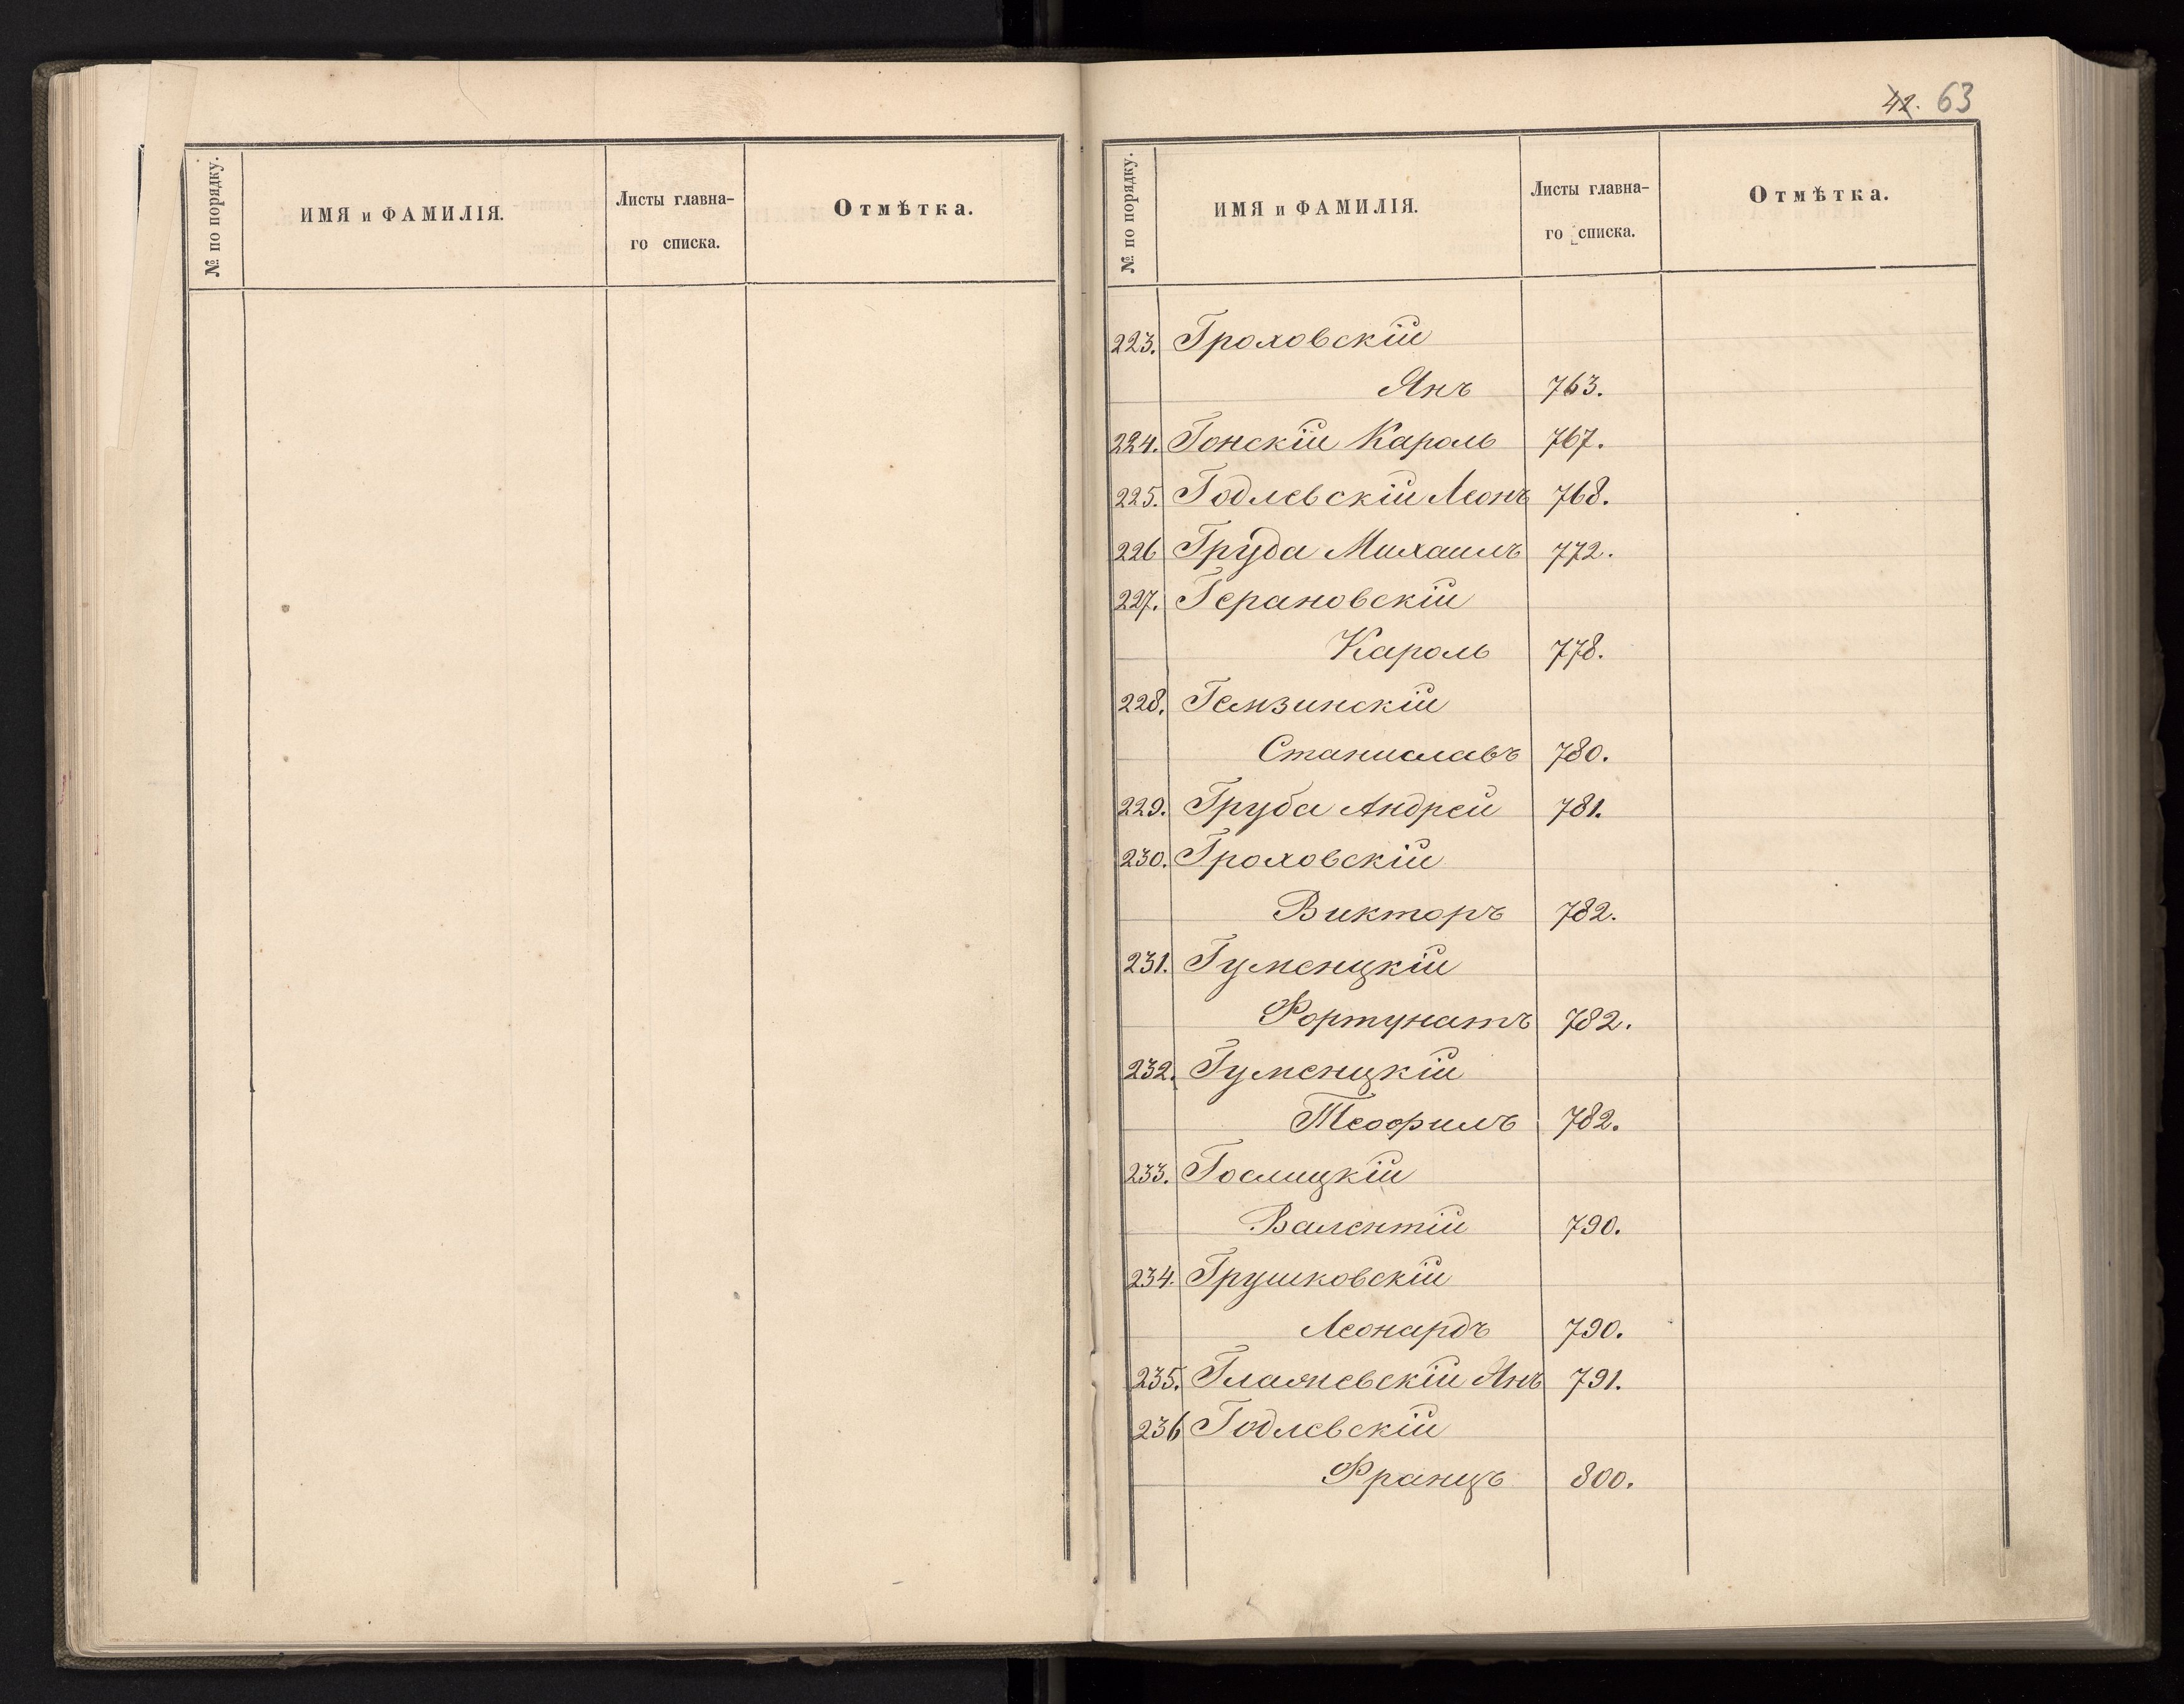 № по порядку.
ИМЯ и ФАМИЛІЯ.
Листы главна-
го списка.
Отмѣтка.
42. 63
№ по порядку.
ИМЯ и ФАМИЛІЯ.
Листы главна-
го списка.
Отмѣтка.
223. Гроховскій
Янъ 763.
224. Гонскій Кароль 767.
225. Годлевскій Леонъ 768.
226 Груда Михаилъ 772.
227. Герановскій
Кароль 778.
228. Гемзинскій
Станиславъ 780.
229. Груба Андрей 781.
230. Гроховскій
Викторъ 782.
231. Гуменцкій
Фортунатъ 782.
232. Гуменцкій
Теофилъ 782.
233. Гослицкій
Валентій 790.
234. Грушковскій
Леонардъ 790.
235. Янъ 791.
236 Годлевскій
Францъ 800.